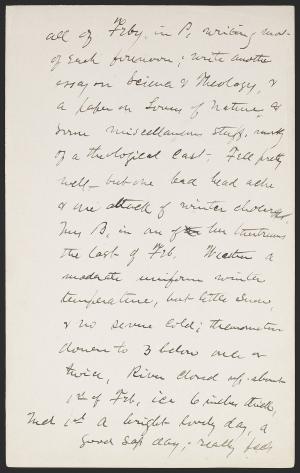 all of Feby. in P, writing most
of each forenoon; write another
essay on Science & Theology, &
a paper on Louis of Nature, &
some miscellaneous stuff, mostly
of a theological cast. Fell pretty
well_ but one bad head ache
& one attack of winter cholera.
Mrs B, in one of her tantrums
the last of Feb. Weather a
moderate uniform winter
temperature, but little snow,
& no severe cold; thermometer
down to 3 below once or
twice, River closed up about
1st of Feb, ice 6 inches thick,
Mch 1st A bright lovely day, a
good sap day; really feels